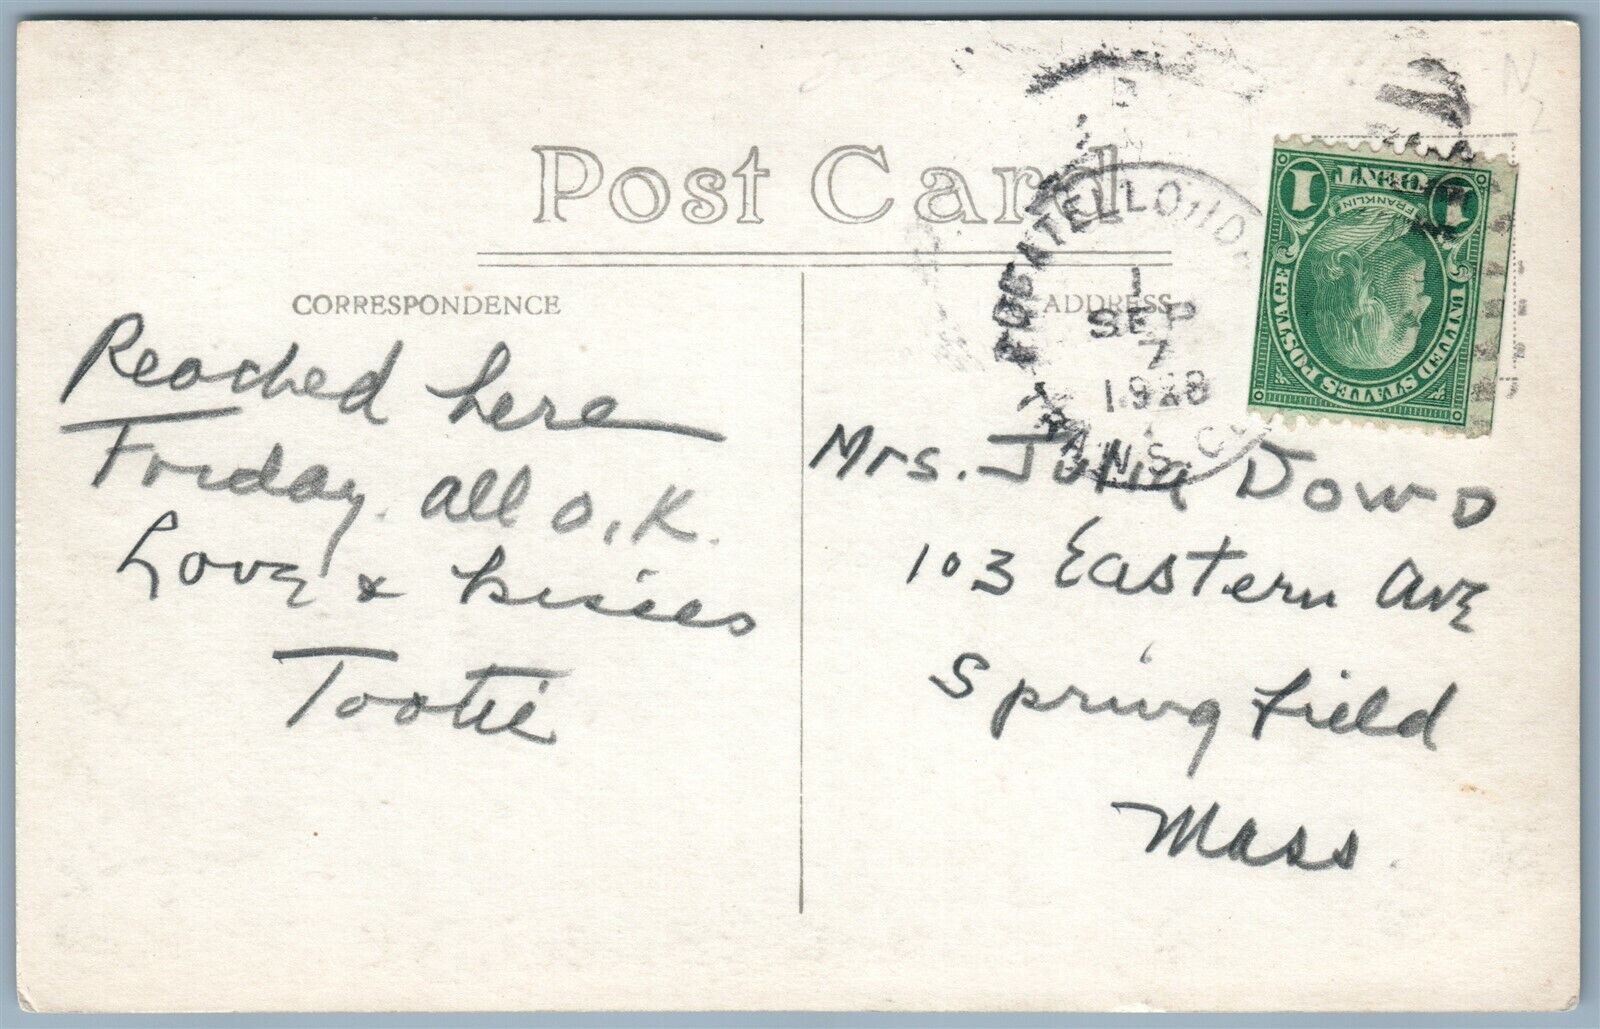 Post Card
CORRESPONDENCE
ADDRESS
POCATELLO, ID
1
SEP
7
1928
TRANS. C
1 CENT 1
FRANKLIN
UNITED STATES POSTAGE
N
2
Reached here
Friday. all O.K.
Love & kisses
Tootie
Mrs. Julia Dowd
103 Eastern Ave
Springfield
Mass.